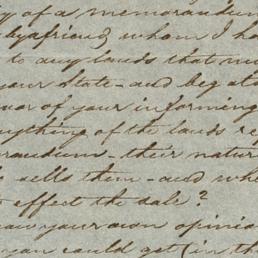 of a memorandum
by a friend, whom I ha
to any lands that
your State - and beg
of your informing
anything of the lands re
randum - their nature
sells them - and wh
effect the sale?
your own opinio
you could get (in th